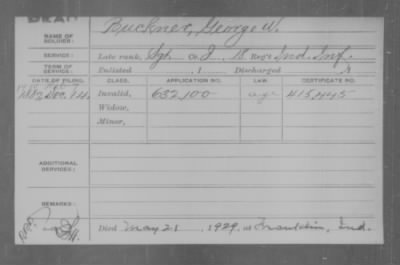 DEAD
Buckner, George W.
NAME OF
SOLDIER:
SERVICE:
Late rank, Sgt. Co. I, 18 Reg't Ind. Inf.
TERM OF
SERVICE:
Enlisted , 1 Discharged , 1
DATE OF FILING. CLASS. APPLICATION NO. LAW. CERTIFICATE NO.
1887 Dec. 14. Invalid, 632,100 age 415,445
Widow,
Minor,
ADDITIONAL
SERVICES:
REMARKS:
Died May 21 , 1929, at Franklin, Ind.